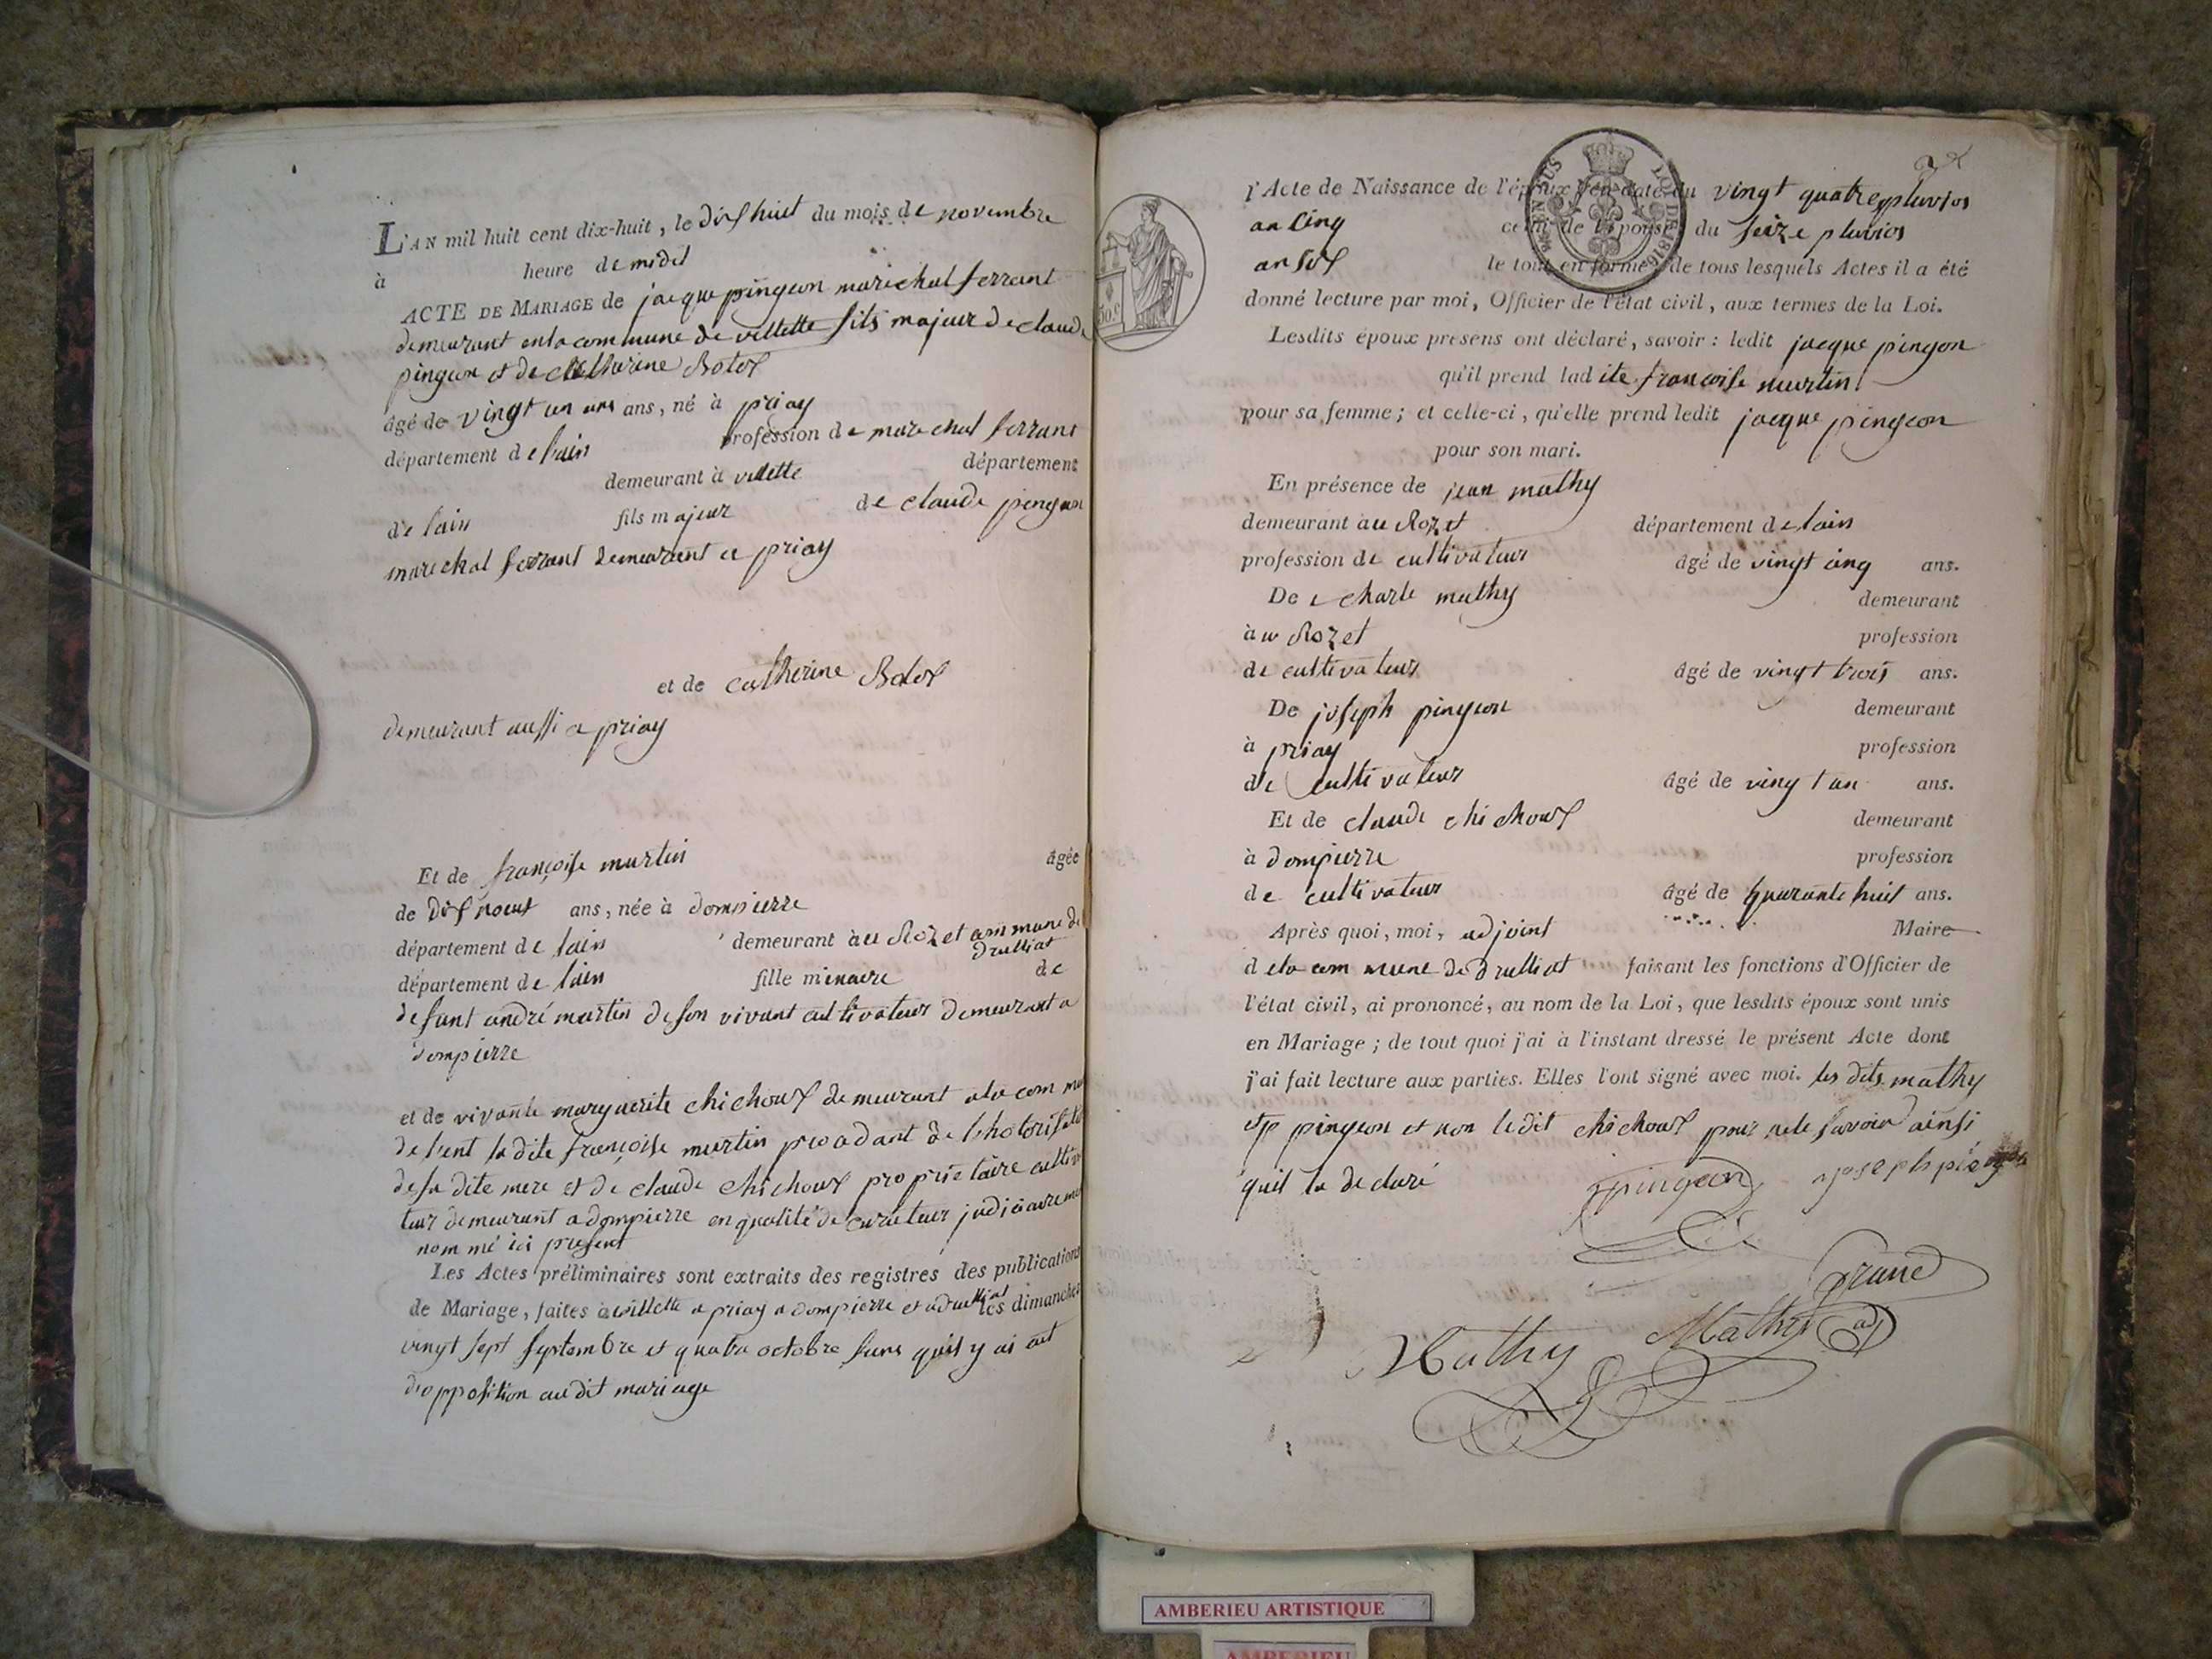 L'AN mil huit cent dix-huit, le dix huit du mois de novembre
à heure de midil
ACTE DE MARIAGE de jacque pingeon marechal ferrant
demeurant en la commune de villette fils majeur de claude
pingeon et de catherine Bolox
âgé de vingt un ans ans, né à priay
département de lain profession de marechal ferrant
demeurant à villette département
de lain fils majeur de claude pingeon
marechal ferrant demeurant a priay
et de catherine Bolox
demeurant aussi a priay
Et de françoise martin âgée
de dix noeuf ans, née à dompierre
département de lain demeurant au Rozet commune de
druilliat
département de lain fille mineure de
defunt andré martin de son vivant cultivateur demeurant a
dompierre
et de vivante marguerite chichoux demeurant a la com
la dite françoise martin procedant de
de sa dite mere et de claude chichoux proprietaire cultiva
teur demeurant a dompierre en qualité de curateur judiciairement
nommé ici present
Les Actes préliminaires sont extraits des registres des publications
de Mariage, faites à villette a priay a dompierre et a druilliat les dimanches
vingt sept septembre et quatre octobre sans quil y ai eut
dopposition au dit mariage
l'Acte de Naissance de l'époux en date du vingt quatre pluvios
an cinq celui de l'épouse du seize pluvios
an sept le tout en forme; de tous lesquels Actes il a été
donné lecture par moi, Officier de l'état civil, aux termes de la Loi.
Lesdits époux présens ont déclaré, savoir: ledit jacque pingeon
qu'il prend ladite françoise martin
pour sa femme; et celle-ci, qu'elle prend ledit jacque pingeon
pour son mari.
En présence de jean mathy
demeurant au Rozet département de lain
profession de cultivateur âgé de vingt cinq ans.
De charle mathy demeurant
à u Rozet profession
de cultivateur âgé de vingt trois ans.
De joseph pingeon demeurant
à priay profession
de cultivateur âgé de vingt un ans.
Et de claude chichoux demeurant
à dompierre profession
de cultivateur âgé de quarante huit ans.
Après quoi, moi, adjoint Maire
de la commune de druilliat faisant les fonctions d'Officier de
l'état civil, ai prononcé, au nom de la Loi, que lesdits époux sont unis
en Mariage; de tout quoi j'ai à l'instant dressé le présent Acte dont
j'ai fait lecture aux parties. Elles l'ont signé avec moi. les dits mathy
et pingeon et non ledit chichoux pour ne le savoir ainsi
quil la declaré
pingeon joseph pingeon
grand
Mathy Mathy adj
LOI DE 1816
50.c
AMBERIEU ARTISTIQUE
AMBERIEU